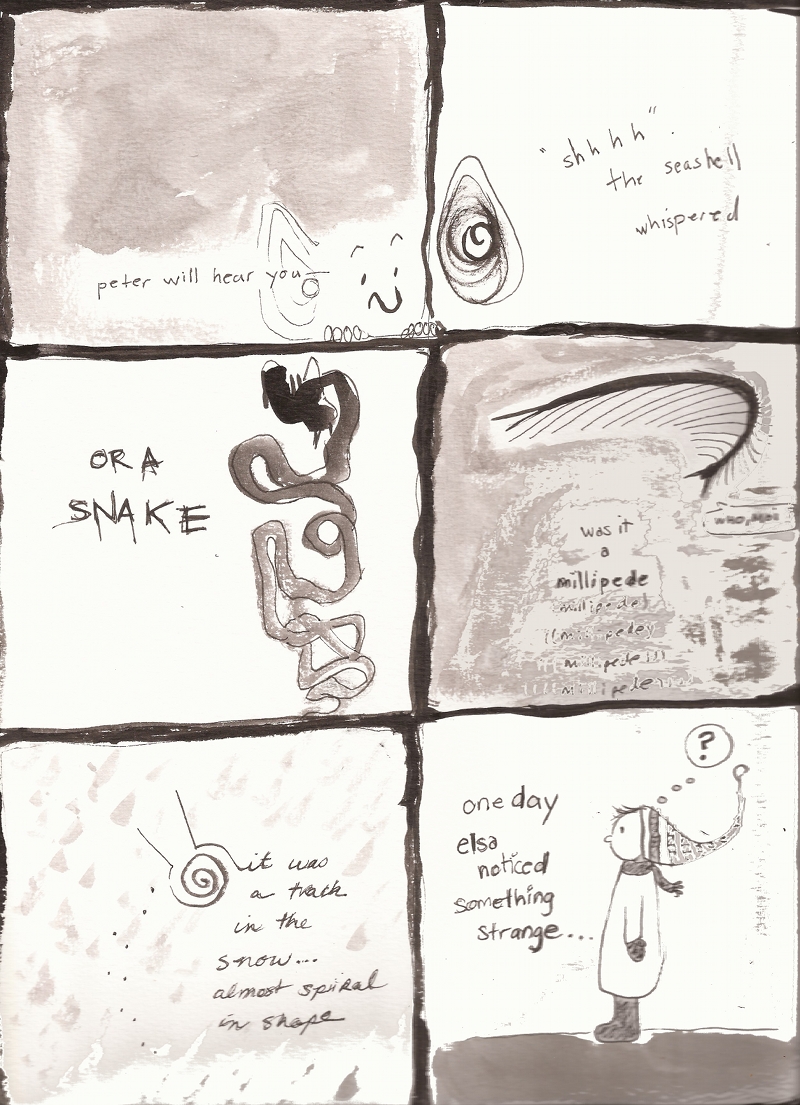 peter will hear you
"shhhh".
the seashell
whispered
OR A
SNAKE
was it
a
millipede
millipede
millipede
millipede
millipede
it was
a track
in the
snow...
almost spiral
in shape
?
one day
elsa
noticed
something
strange...